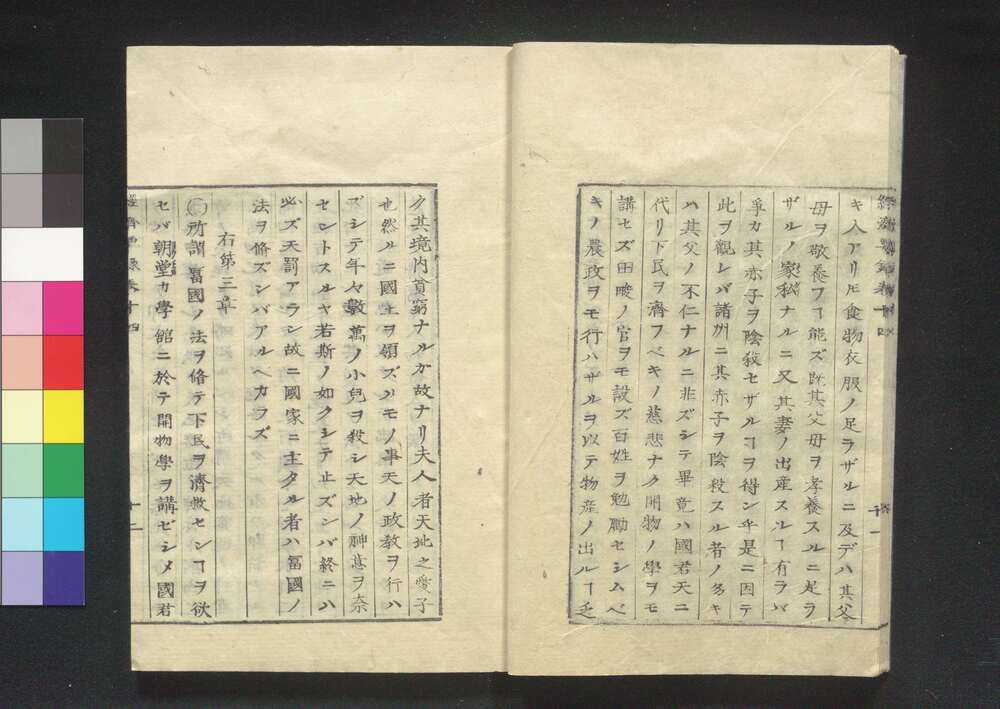 キ人アリ𪜈食物衣服ノ足ラザルニ及デハ其父
母ヲ敬養フヿ能ズ既其父母ヲ孝養スルニ足ラ
ザルノ家私ナルニ又其妻ノ出産スルヿ有ラバ
爭カ其赤子ヲ陰殺セザルヿヲ得ン乎是ニ因テ
此ヲ觀レバ諸州ニ其赤子ヲ陰殺スル者ノ多キ
ハ其父ノ不仁ナルニ非ズシテ畢竟ハ國君天ニ
代リ下民ヲ濟フベキノ慈悲ナク開物ノ學ヲモ
講セズ田畯ノ官ヲモ設ズ百姓ヲ勉勵セシムベ
キノ農政ヲモ行ハザルヲ以テ物産ノ出ルヿ乏
ク其境内貧窮ナルガ故ナリ夫人者天地之愛子
也然ルニ國土ヲ領ズルモノ事天ノ政教ヲ行ハ
ズシテ年々數萬ノ小兒ヲ殺シ天地ノ神意ヲ奈
セントスルヤ若斯ノ如クシテ止ズンバ終ニハ
必ズ天罰アラン故ニ國家ニ主タル者ハ富國ノ
法ヲ脩ズンバアルベカラズ
右第三章
所謂冨國ノ法ヲ脩テ下民ヲ濟救センヿヲ欲
セバ朝堂カ學館ニ於テ開物學ヲ講ゼシメ國君
十二